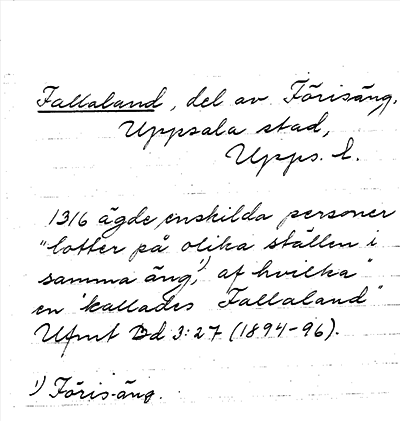 Fallaland, del av Förisäng,
Uppsala stad,
Upps. l.
1316 ägde enskilda personer
"lotter på olika ställen i
samma äng,¹) af hvilka"
en "kallades Fallaland"
Ufmt Bd 3:27 (1894-96).
¹) Föris-äng.